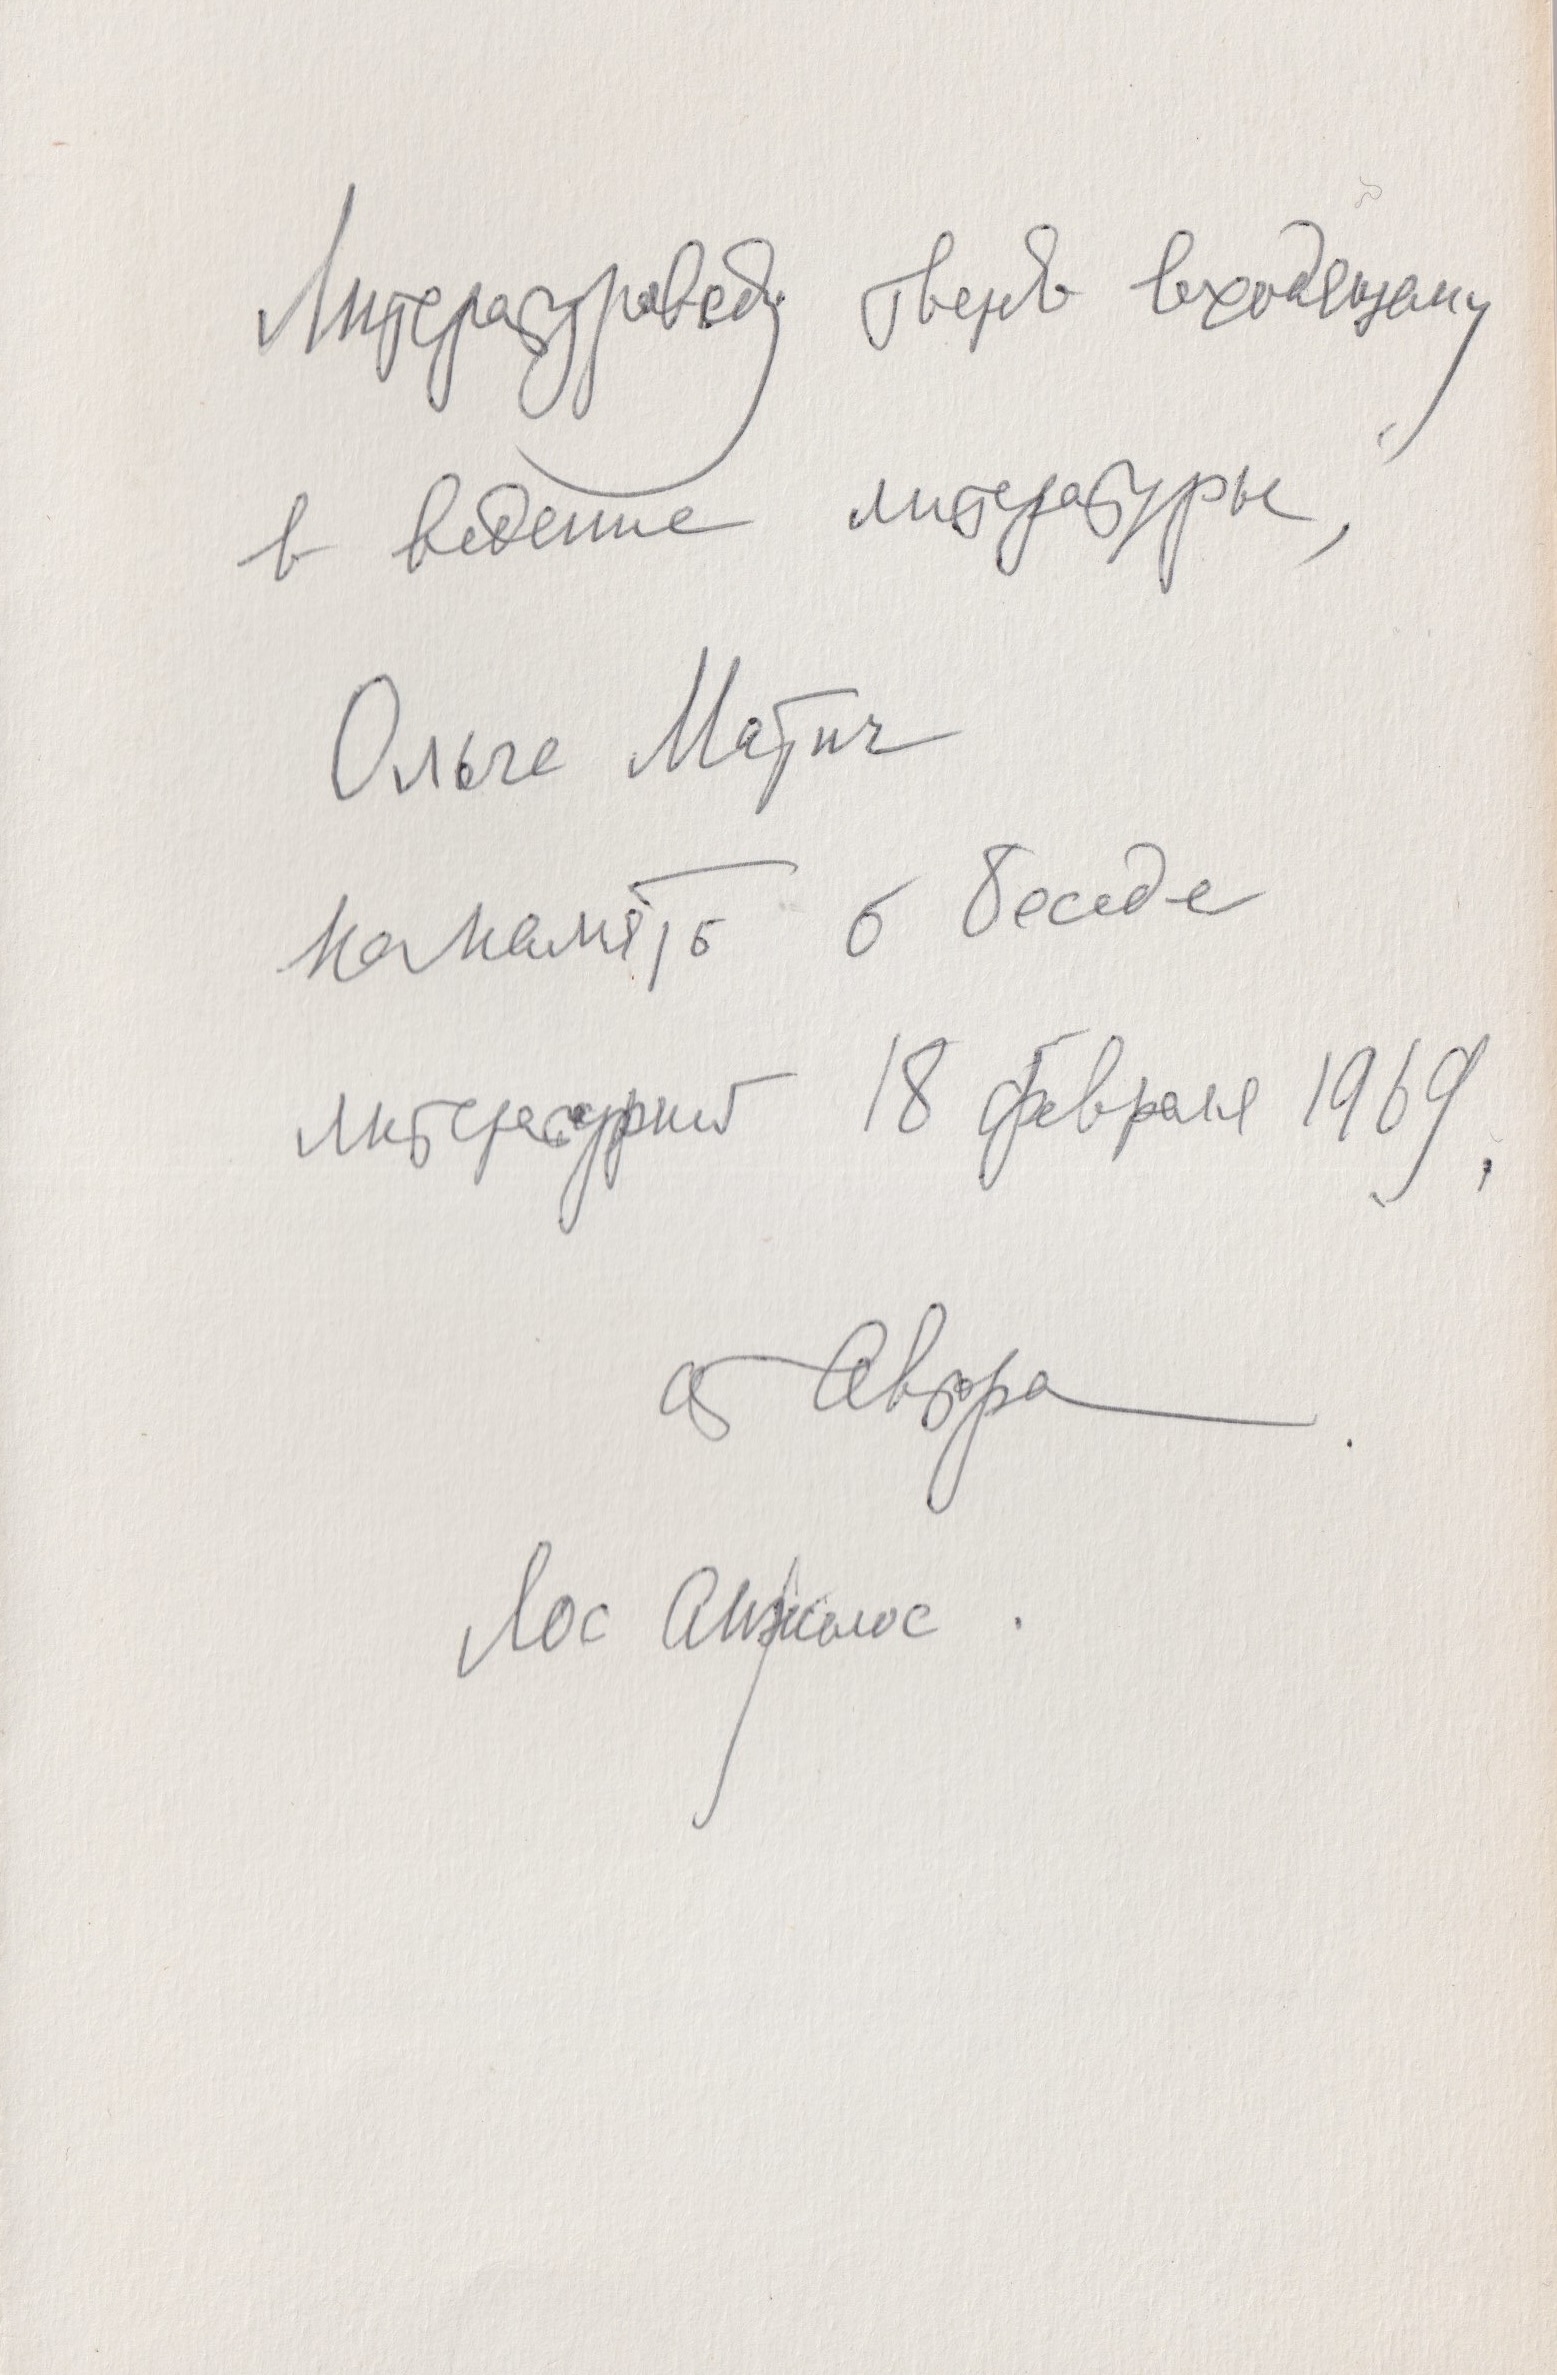 Литературоведу твердо входящему
в ведение литературы,
Ольге Матич
на память о беседе
литературной 18 февраля 1969,
от Автора.
Лос Анжелос.